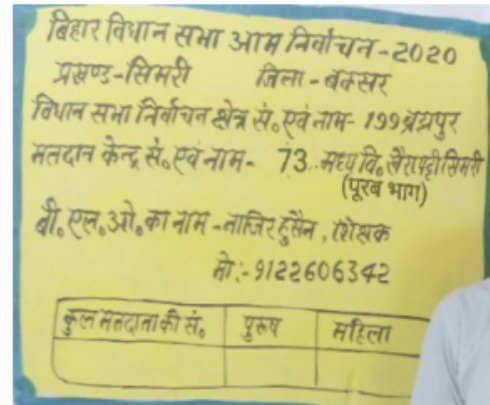 बिहार विधान सभा आम निर्वाचन-2020
प्रखण्ड-सिमरी जिला-बक्सर
विधान सभा निर्वाचन क्षेत्र सं० एवं नाम- 199 ब्रह्मपुर
मतदान केन्द्र सं० एवं नाम- 73. मध्य वि० खैरापट्टी सिमरी
(पूरब भाग)
बी० एल० ओ० का नाम - नाजिर हुसैन, शिक्षक
मो:- 9122606342
कुल मतदाता की सं० पुरुष महिला